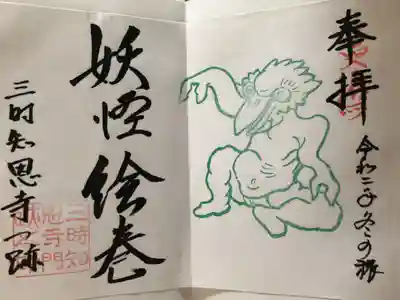 奉拝
令和二年冬の旅
妖怪絵巻
三時知恩寺門跡
三時知
恩寺門